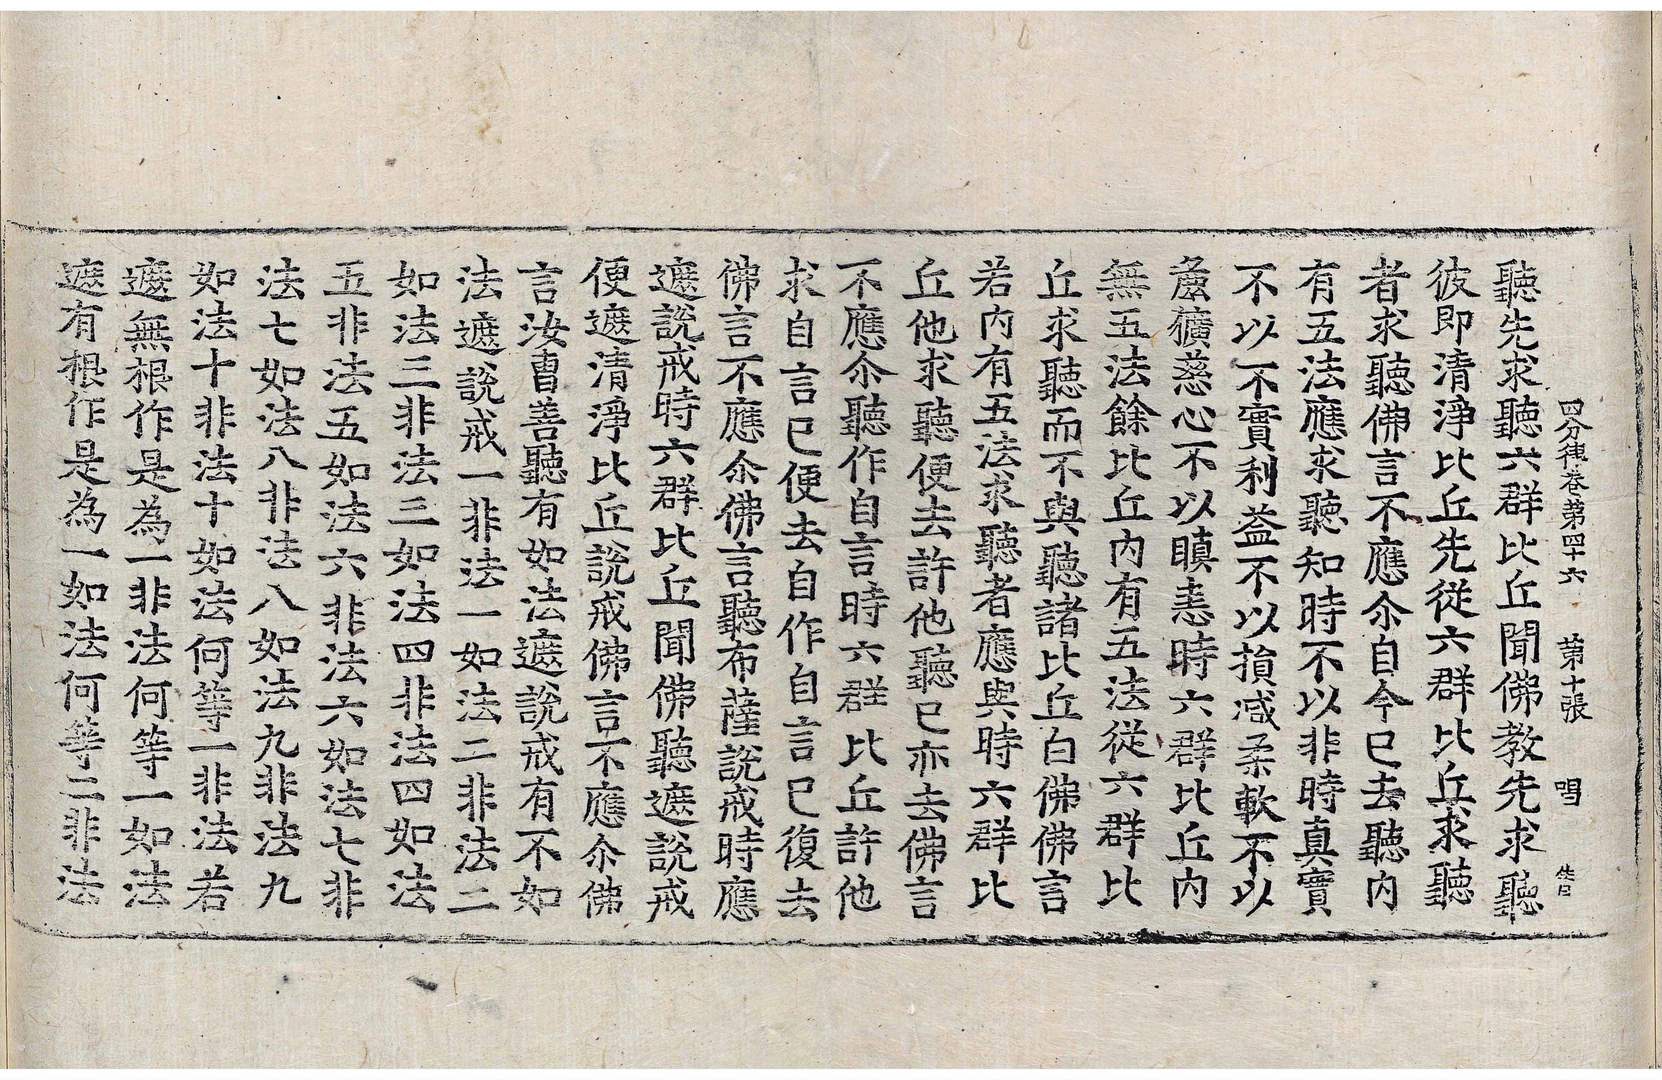 四分律卷第四十六 第十張 唱
聽先求聽六群比丘聞佛教先求聽
彼即清淨比丘先從六群比丘求聽
者求聽佛言不應尒自今已去聽內
有五法應求聽知時不以非時真實
不以不實利益不以損減柔軟不以
麁獷慈心不以瞋恚時六群比丘內
無五法餘比丘內有五法從六群比
丘求聽而不與聽諸比丘白佛佛言
若內有五法求聽者應與時六群比
丘他求聽便去許他聽已亦去佛言
不應尒聽作自言時六群比丘許他
求自言已便去自作自言已復去
佛言不應尒佛言聽布薩說戒時應
遮說戒時六群比丘聞佛聽遮說戒
便遮清淨比丘說戒佛言不應尒佛
言汝曹善聽有如法遮說戒有不如
法遮說戒一非法一如法二非法二
如法三非法三如法四非法四如法
五非法五如法六非法六如法七非
法七如法八非法八如法九非法九
如法十非法十如法何等一非法若
遮無根作是為一非法何等一如法
遮有根作是為一如法何等二非法